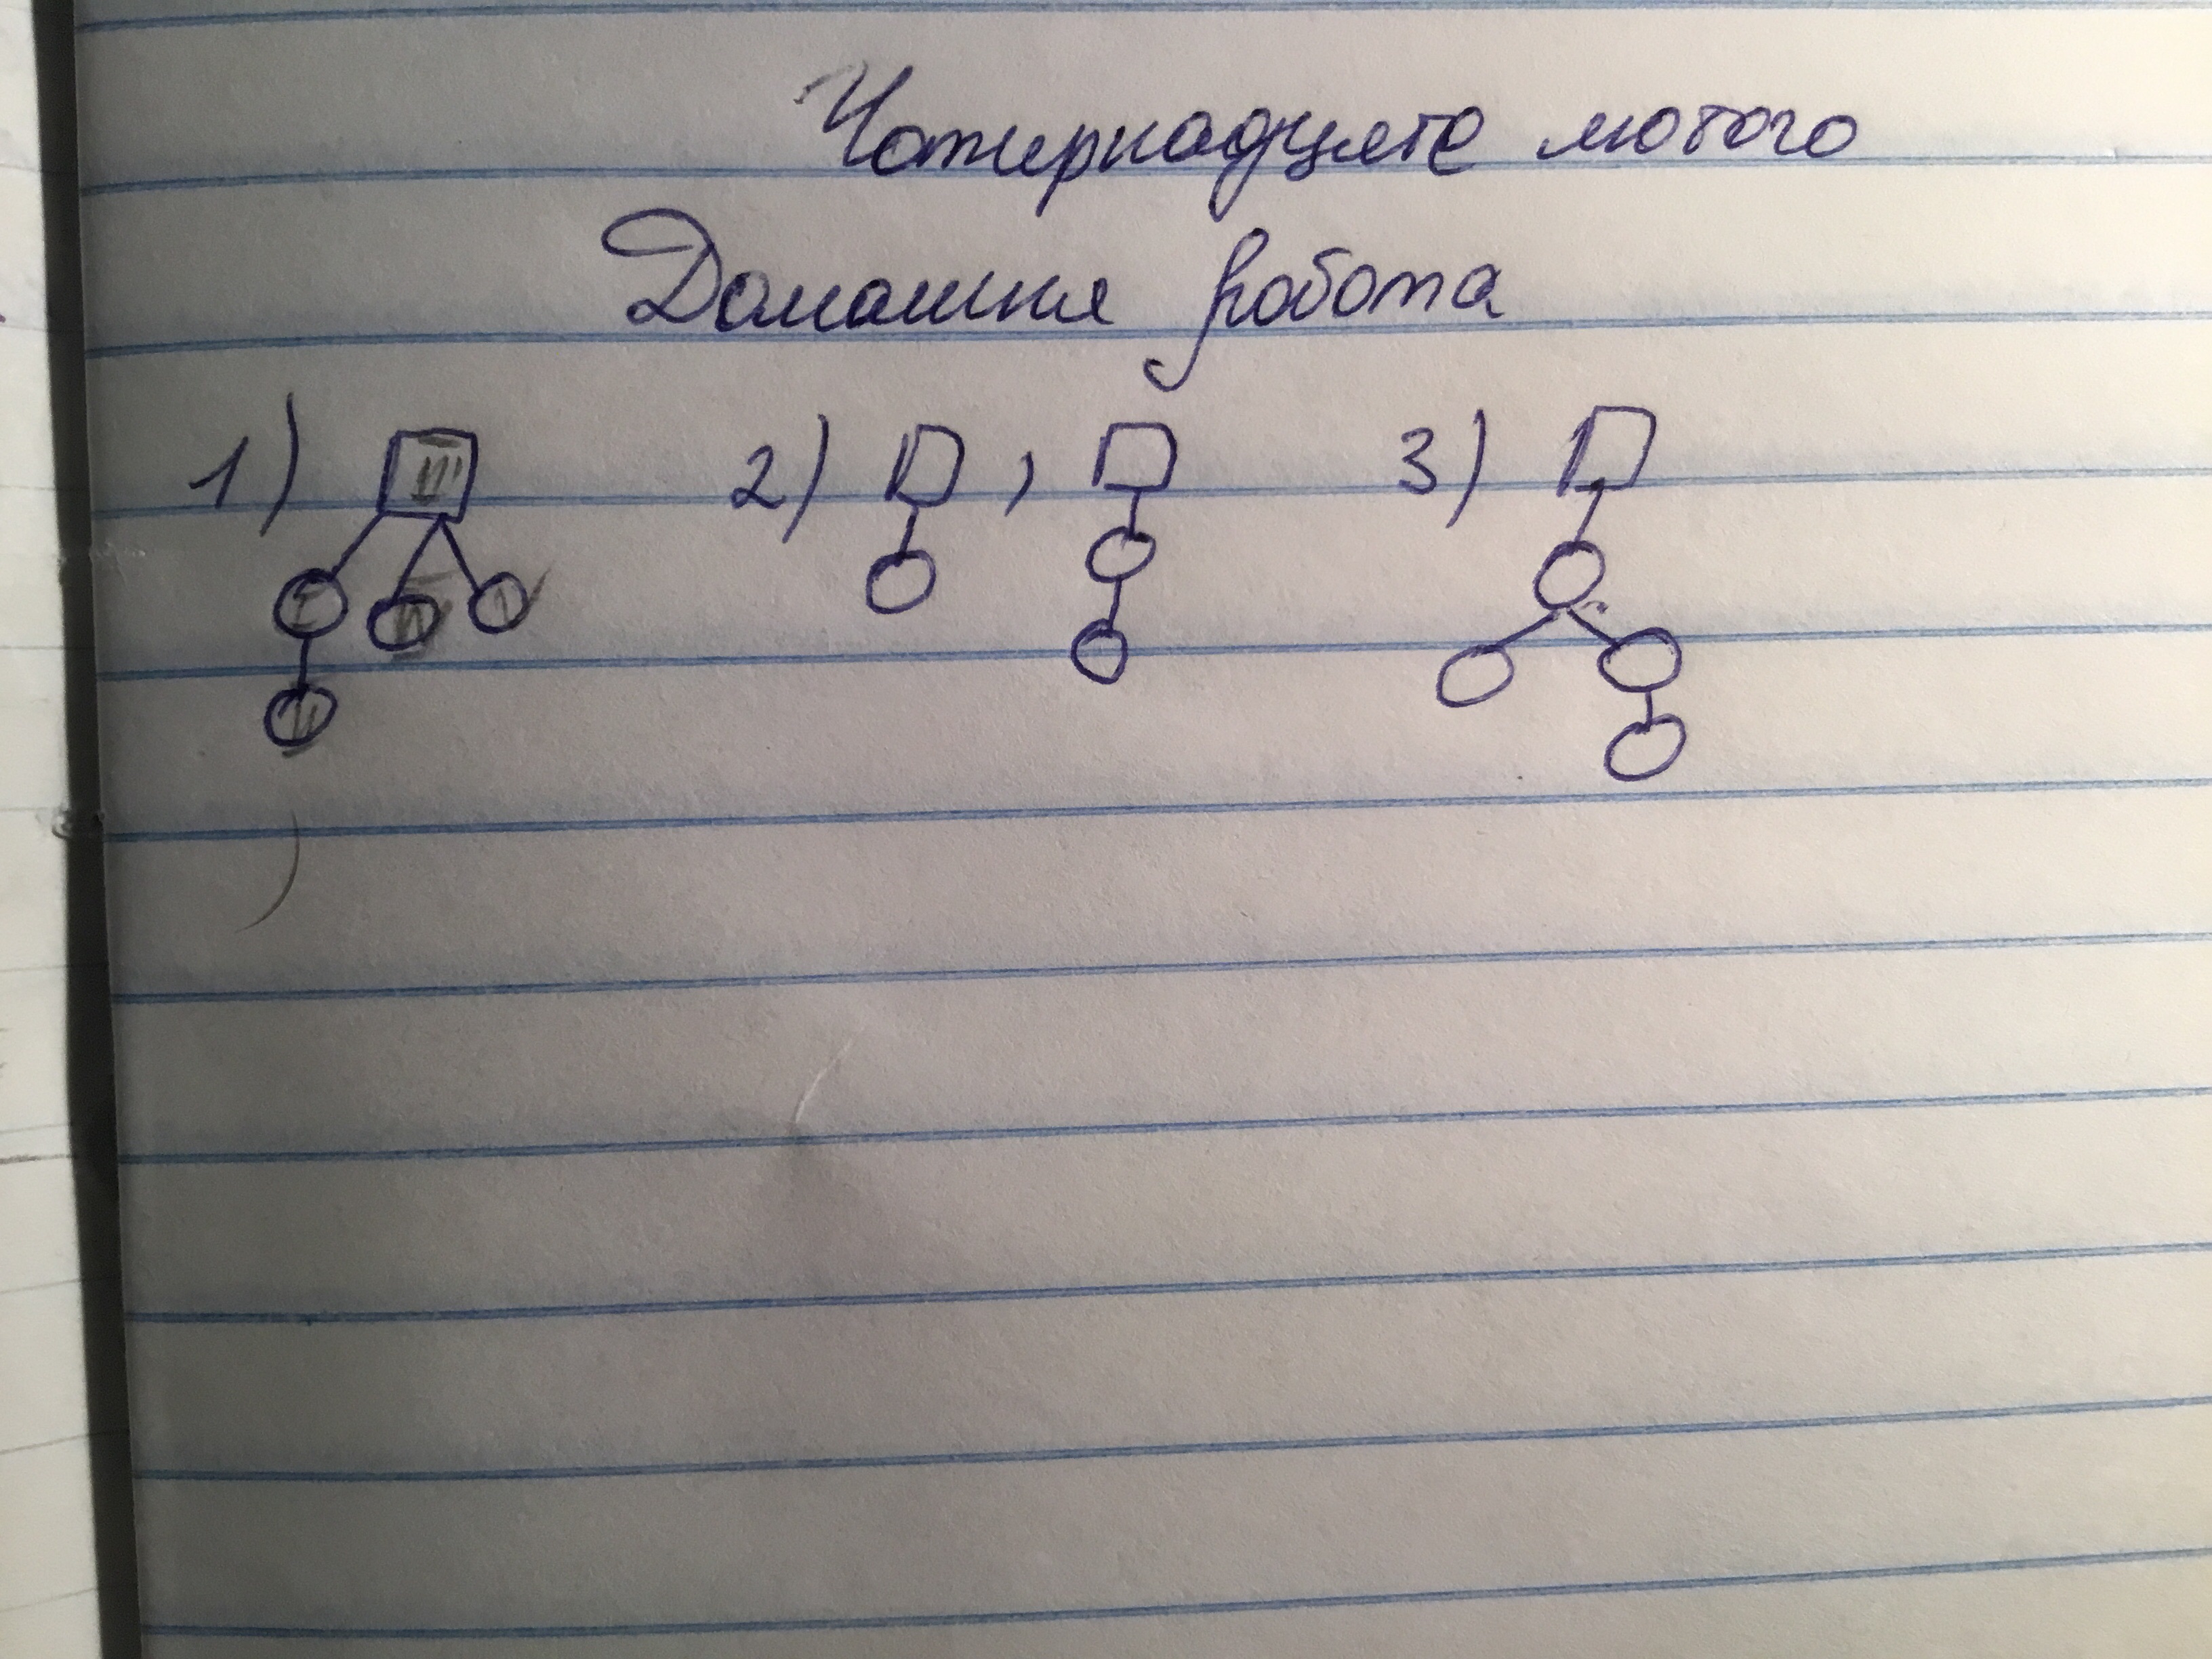 Чотирнадцяте лютого
Домашня робота
1) III 2) , 3)
I IV V
II